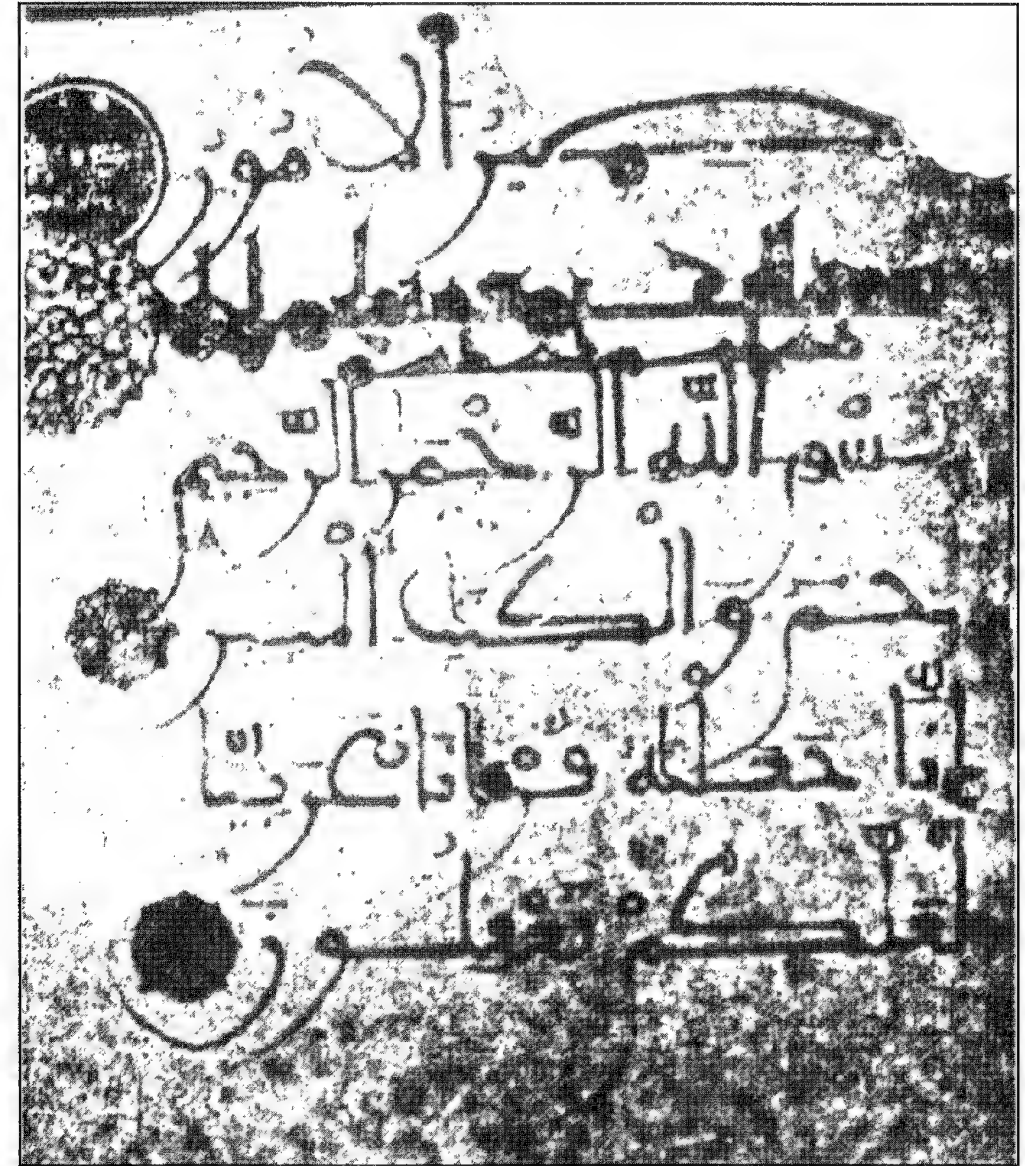 تصير الأمور
بسم الله الرحمن الرحيم
حم والكتب المبين
إنا جعلنه قرانا عربيا
لعلكم تعقلون